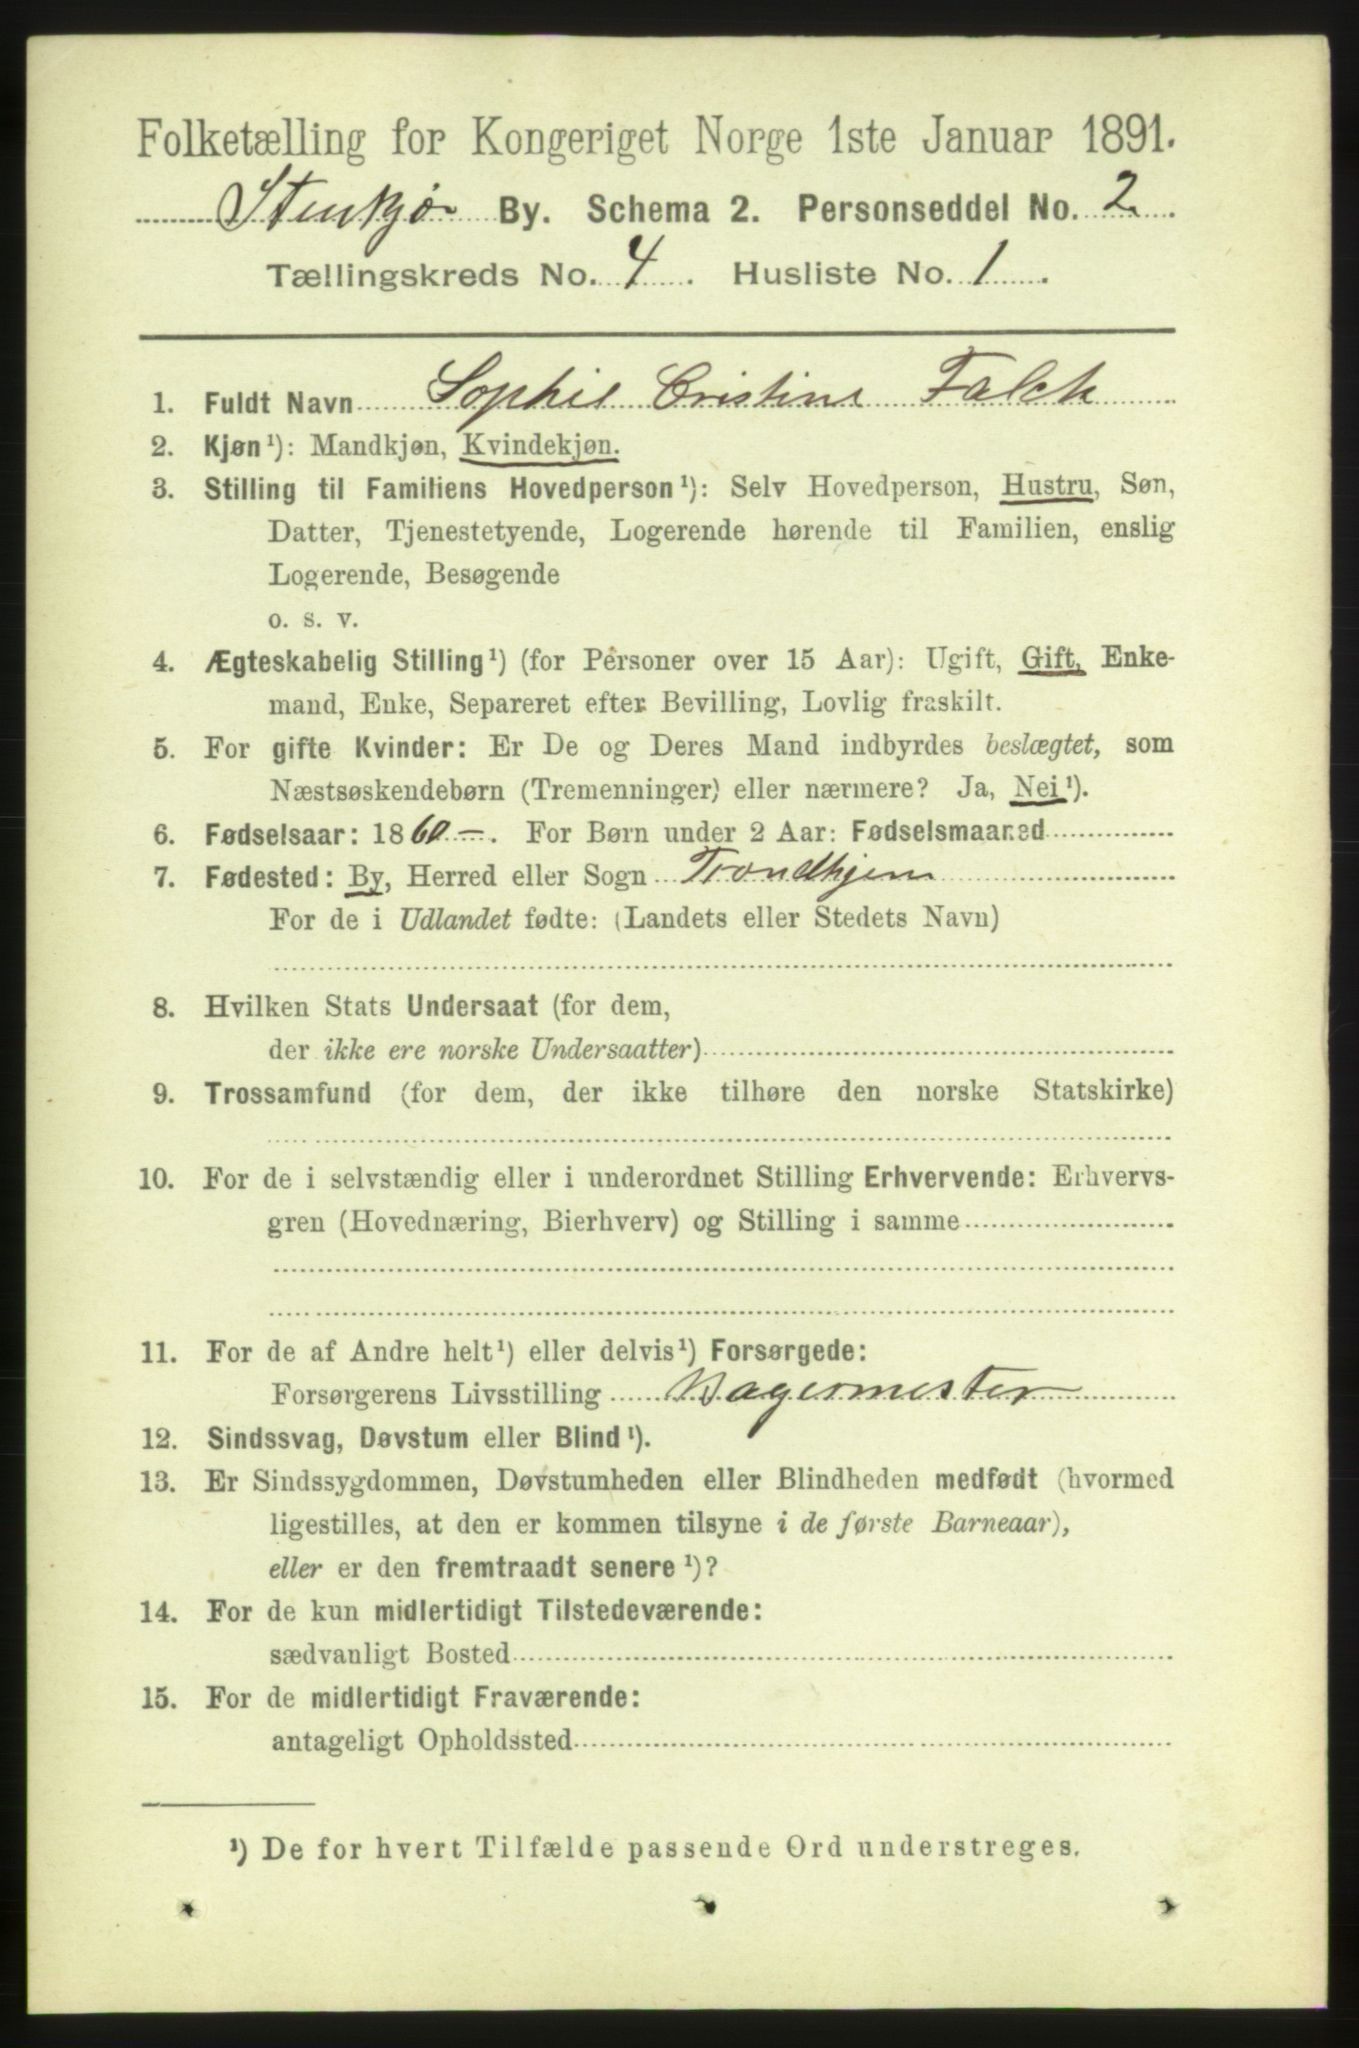 Folketælling for Kongeriget Norge 1ste Januar 1891.
Stenkjær By. Schema 2. Personseddel No. 2.
Tællingskreds No. 4. Husliste No. 1.
1. Fuldt Navn Sophie Cristine Falck
2. Kjøn¹): Mandkjøn, Kvindekjøn.
3. Stilling til Familiens Hovedperson¹): Selv Hovedperson, Hustru, Søn,
Datter, Tjenestetyende, Logerende hørende til Familien, enslig
Logerende, Besøgende
o. s. v.
4. Ægteskabelig Stilling¹) (for Personer over 15 Aar): Ugift, Gift, Enke-
mand, Enke, Separeret efter Bevilling, Lovlig fraskilt.
5. For gifte Kvinder: Er De og Deres Mand indbyrdes beslægtet, som
Næstsøskendebørn (Tremenninger) eller nærmere? Ja, Nei¹).
6. Fødselsaar: 1860 –. For Børn under 2 Aar: Fødselsmaaned
7. Fødested: By, Herred eller Sogn Trondhjem
For de i Udlandet fødte: (Landets eller Stedets Navn)
8. Hvilken Stats Undersaat (for dem,
der ikke ere norske Undersaatter)
9. Trossamfund (for dem, der ikke tilhøre den norske Statskirke)
10. For de i selvstændig eller i underordnet Stilling Erhvervende: Erhvervs-
gren (Hovednæring, Bierhverv) og Stilling i samme
11. For de af Andre helt¹) eller delvis¹) Forsørgede:
Forsørgerens Livsstilling Bagermester
12. Sindssvag, Døvstum eller Blind¹).
13. Er Sindssygdommen, Døvstumheden eller Blindheden medfødt (hvormed
ligestilles, at den er kommen tilsyne i de første Barneaar),
eller er den fremtraadt senere¹)?
14. For de kun midlertidigt Tilstedeværende:
sædvanligt Bosted
15. For de midlertidigt Fraværende:
antageligt Opholdssted
¹) De for hvert Tilfælde passende Ord understreges.